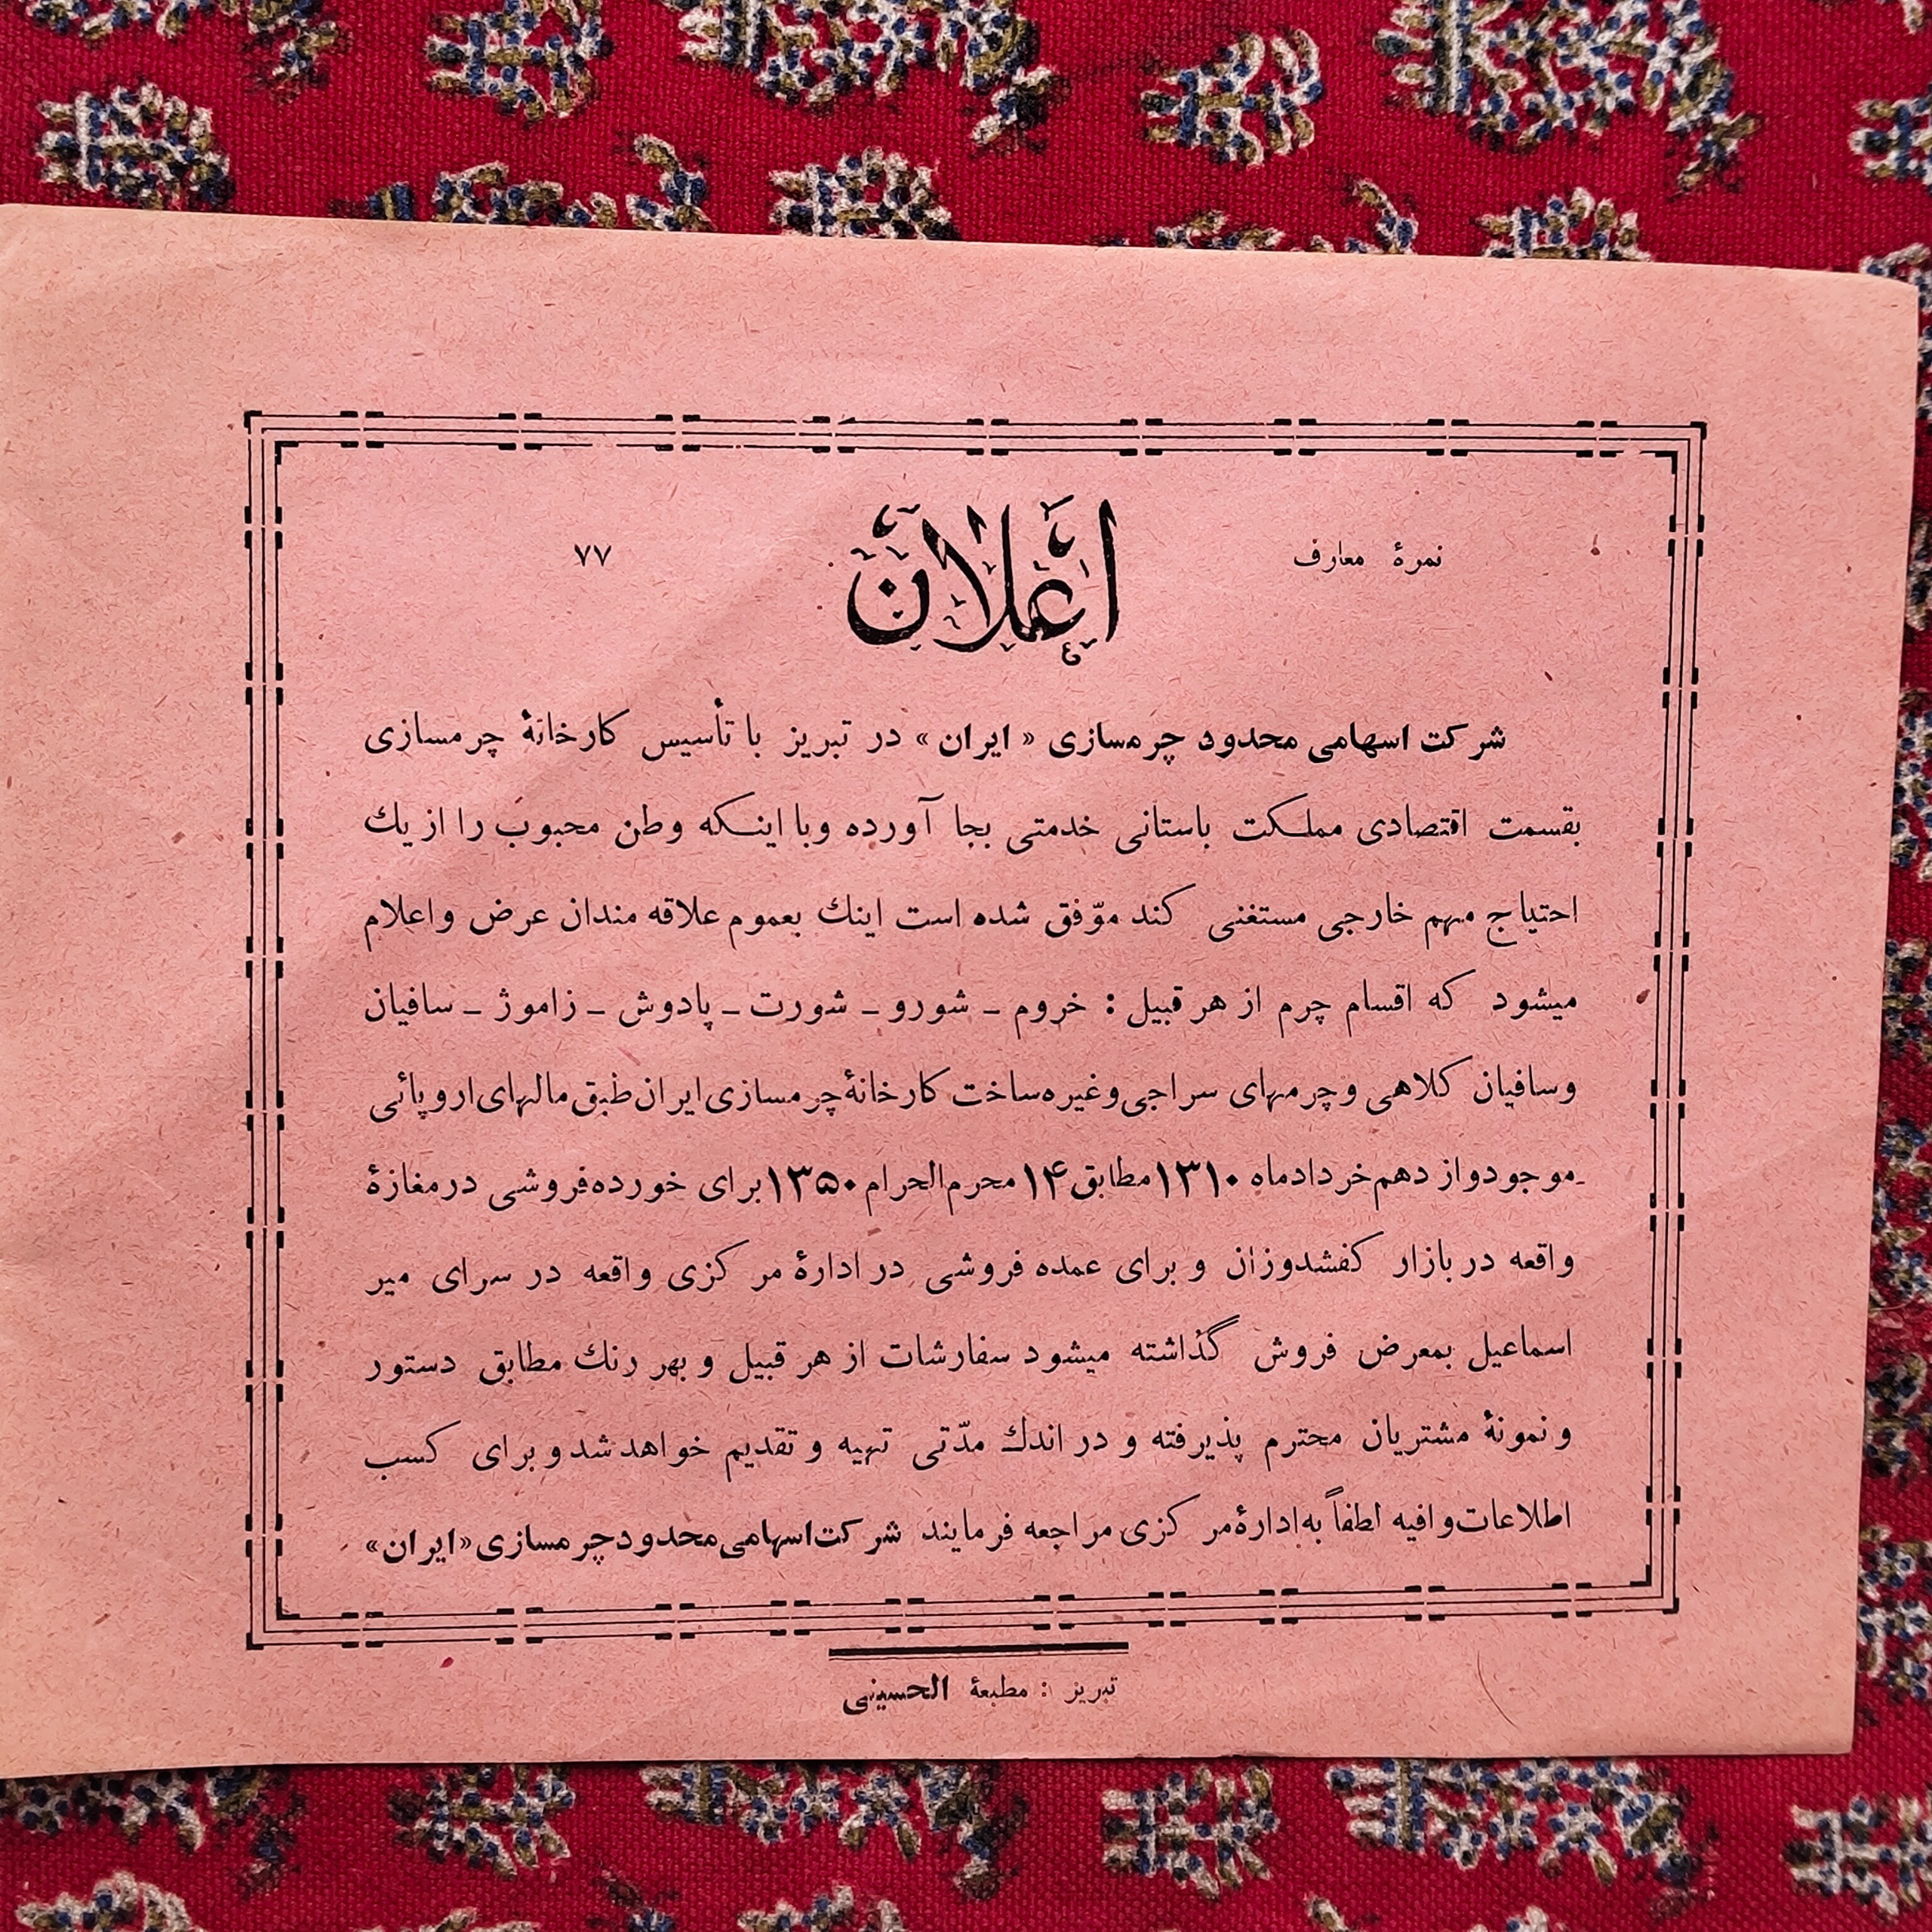 نمرهٔ معارف
اعلان
۷۷
شرکت اسهامی محدود چرمسازی « ایران » در تبریز با تأسیس کارخانهٔ چرمسازی
بقسمت اقتصادی مملکت باستانی خدمتی بجا آورده وبا اینکه وطن محبوب را از یك
احتیاج مهم خارجی مستغنی کند موّفق شده است اینك بعموم علاقه مندان عرض واعلام
میشود که اقسام چرم از هر قبیل : خروم ـ شورو ـ شورت ـ پادوش ـ زاموژ ـ سافیان
وسافیان کلاهی وچرمهای سراجی وغیره ساخت کارخانهٔ چرمسازی ایران طبق مالهای اروپائی
موجود واز دهم خردادماه ۱۳۱۰ مطابق ۱۴ محرم الحرام ۱۳۵۰ برای خورده فروشی در مغازهٔ
واقعه در بازار کفشدوزان و برای عمده فروشی در ادارهٔ مرکزی واقعه در سرای میر
اسماعیل بمعرض فروش گذاشته میشود سفارشات از هر قبیل و بهر رنك مطابق دستور
و نمونهٔ مشتریان محترم پذیرفته و در اندك مدّتی تهیه و تقدیم خواهد شد و برای کسب
اطلاعات وافیه لطفاً به ادارهٔ مرکزی مراجعه فرمایند شرکت اسهامی محدود چرمسازی «ایران»
تبریز : مطبعهٔ الحسینی